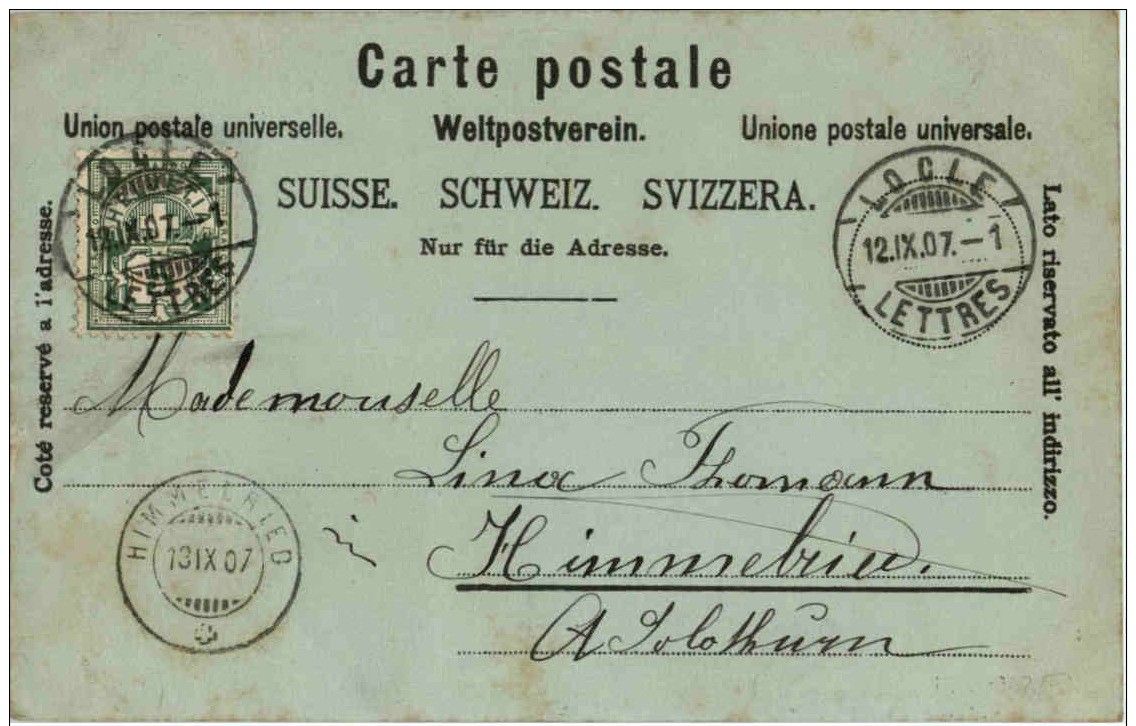 Carte postale
Union postale universelle. Weltpostverein. Unione postale universale.
SUISSE. SCHWEIZ. SVIZZERA.
Nur für die Adresse.
Coté reservé a l'adresse.
Lato riservato all' indirizzo.
LOCLE
12.IX.07.–1
LETTRES
LOCLE
12.IX.07.–1
LETTRES
Mademouselle
Lina Thomann
in Himmelried.
A Solothurn
HIMMELRIED
13IX07